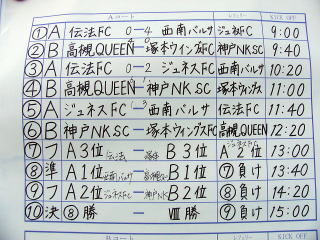 Aコート レフェリー KICK OFF
① A 伝法FC 0-4 西南バルサ ジュネFC 9:00
② B 高槻QUEEN 0- 塚本ウイングスFC 神戸NKSC 9:40
③ A 伝法FC 0-2 ジュネスFC 西南バルサ 10:20
④ B 高槻QUEEN - 神戸NKSC 塚本ウイングス 11:00
⑤ A ジュネスFC 1-3 西南バルサ 伝法FC 11:40
⑥ B 神戸NKSC - 塚本ウイングスFC 高槻QUEEN 12:20
⑦ フ A3位 伝法 - 塚本 B3位 ジュネスFC A2位 13:00
⑧ 準 A1位 西南バルサ - 高槻 B1位 ⑦負け 13:40
⑨ フ A2位 ジュネスFC - 神戸NK B2位 ⑧負け 14:20
⑩ 決 ⑧勝 - Ⅷ勝 ⑨負け 15:00
Bコート レフェリー KICK OFF